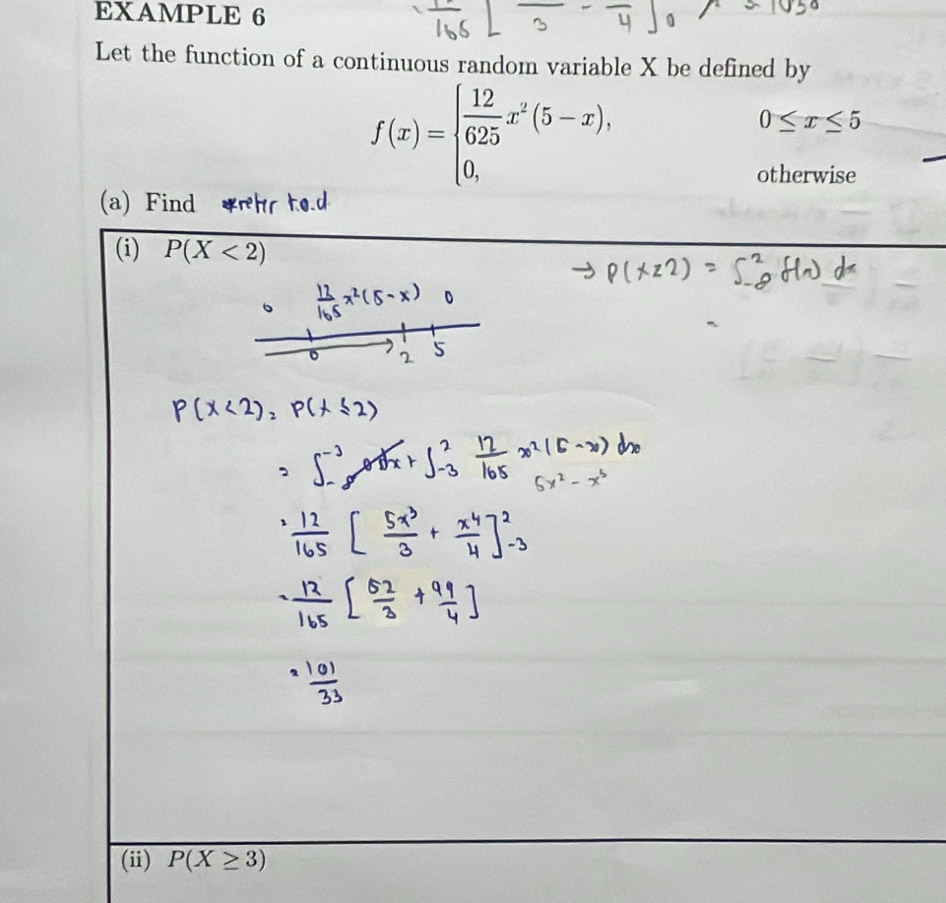 EXAMPLE 6
165 [ 3 - 4 ]0
Let the function of a continuous random variable X be defined by
f(x) = { 12/625 x²(5 − x), 0 ≤ x ≤ 5
0, otherwise
(a) Find *refer t.o.d
(i) P(X < 2)
→ P(X≤2) = ∫_{-∞}^{2} f(x) dx
0 12/165 x²(5-x) 0
0 2 5
P(X<2) = P(X≤2)
= ∫_{-∞}^{-3} 0dx + ∫_{-3}^{2} 12/165 x²(5-x) dx
5x² - x³
= 12/165 [ 5x³/3 + x⁴/4 ]_{-3}^{2}
= 12/165 [ 52/3 + 99/4 ]
= 101/33
(ii) P(X ≥ 3)